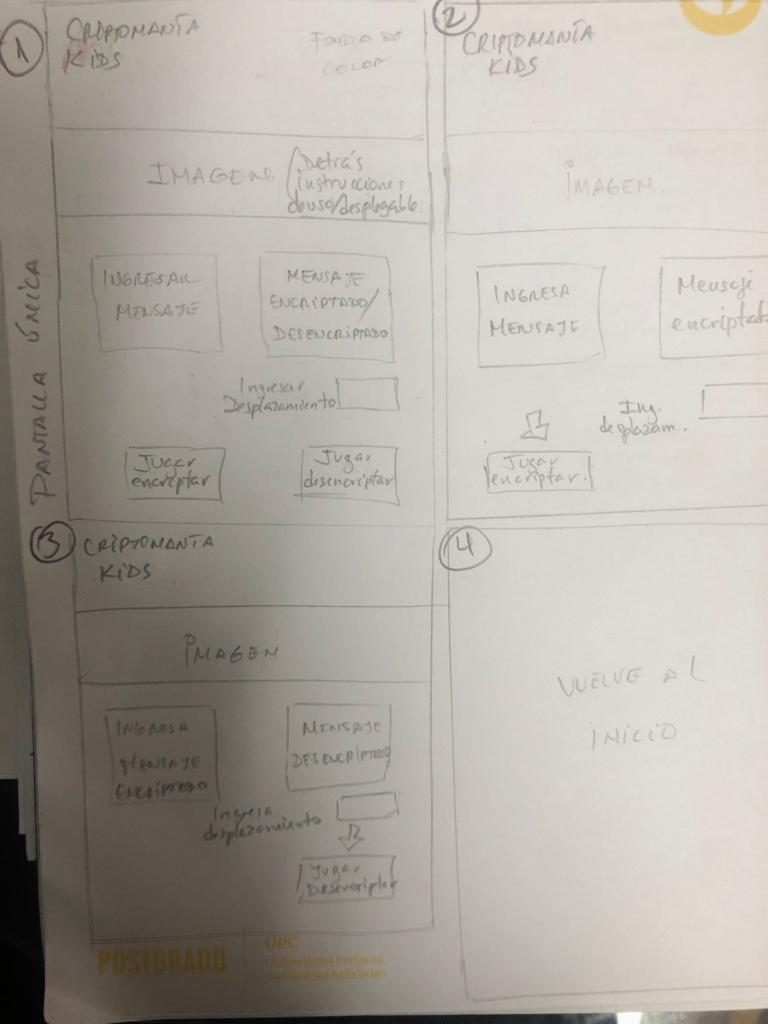 PANTALLA ÚNICA
1
CRIPTOMANÍA
KIDS
FONDO DE
COLOR
IMAGEN
Detrás
instrucciones
de uso/desplegable.
INGRESAR
MENSAJE
MENSAJE
ENCRIPTADO/
DESENCRIPTADO
Ingresar
Desplazamiento
Jugar
encriptar
Jugar
desencriptar
2
CRIPTOMANÍA
KIDS
IMAGEN
INGRESA
MENSAJE
Mensaje
encriptado
Ing.
desplazam.
Jugar
encriptar.
3
CRIPTOMANÍA
KIDS
IMAGEN
INGRESA
MENSAJE
ENCRIPTADO
MENSAJE
DESENCRIPTADO
Ingresa
desplazamiento
Jugar
Desencriptar
4
VUELVE AL
INICIO
POSTGRADO
UPC
Universidad Peruana
de Ciencias Aplicadas